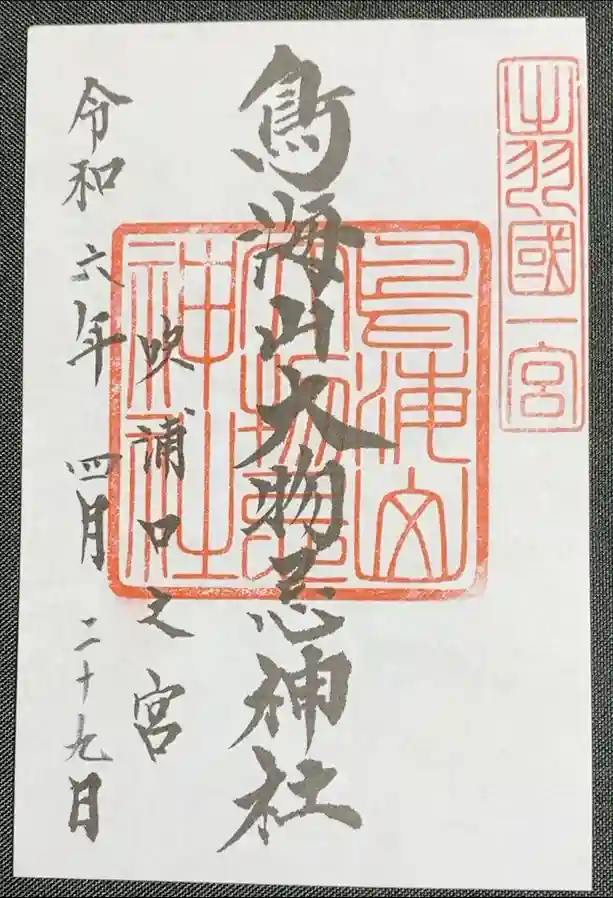 出羽國一宮
鳥海山大物忌神社
鳥海山大物忌神社
吹浦口之宮
令和六年四月二十九日